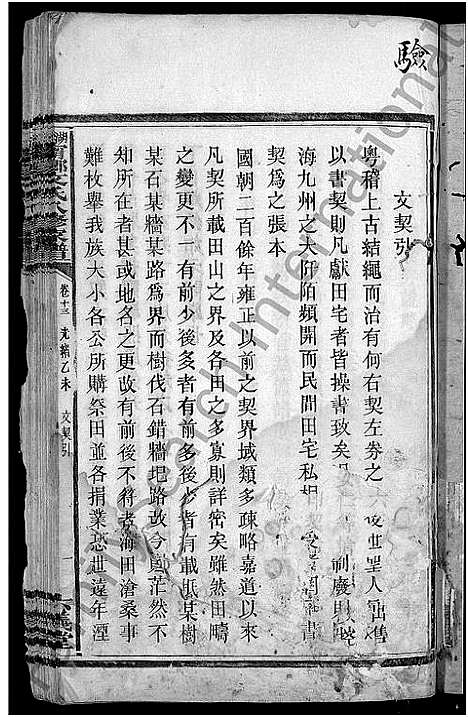 驗
文契引
粵稽上古結繩而治有何右契左券之 後世聖人
以書契則凡獻田宅者皆操書致矣 制廢
海九州之大阡陌頻開而民間田宅私相 書
契為之張本
國朝二百餘年雍正以前之契界域類多疎略嘉道以來
凡契所載田山之界及各田之多寡則詳密矣雖然田疇
之變更不一有前少後多者有前多後少者有載某樹
某石某牆某路為界而樹伐石錯牆圯路改今竟茫然不
知所在者甚或地名之更改有前後不符者海田滄桑事
難枚舉我族大小各公所購祭田並各捐業恐世遠年湮
卷十三 光緒乙未 文契引
一
Research International